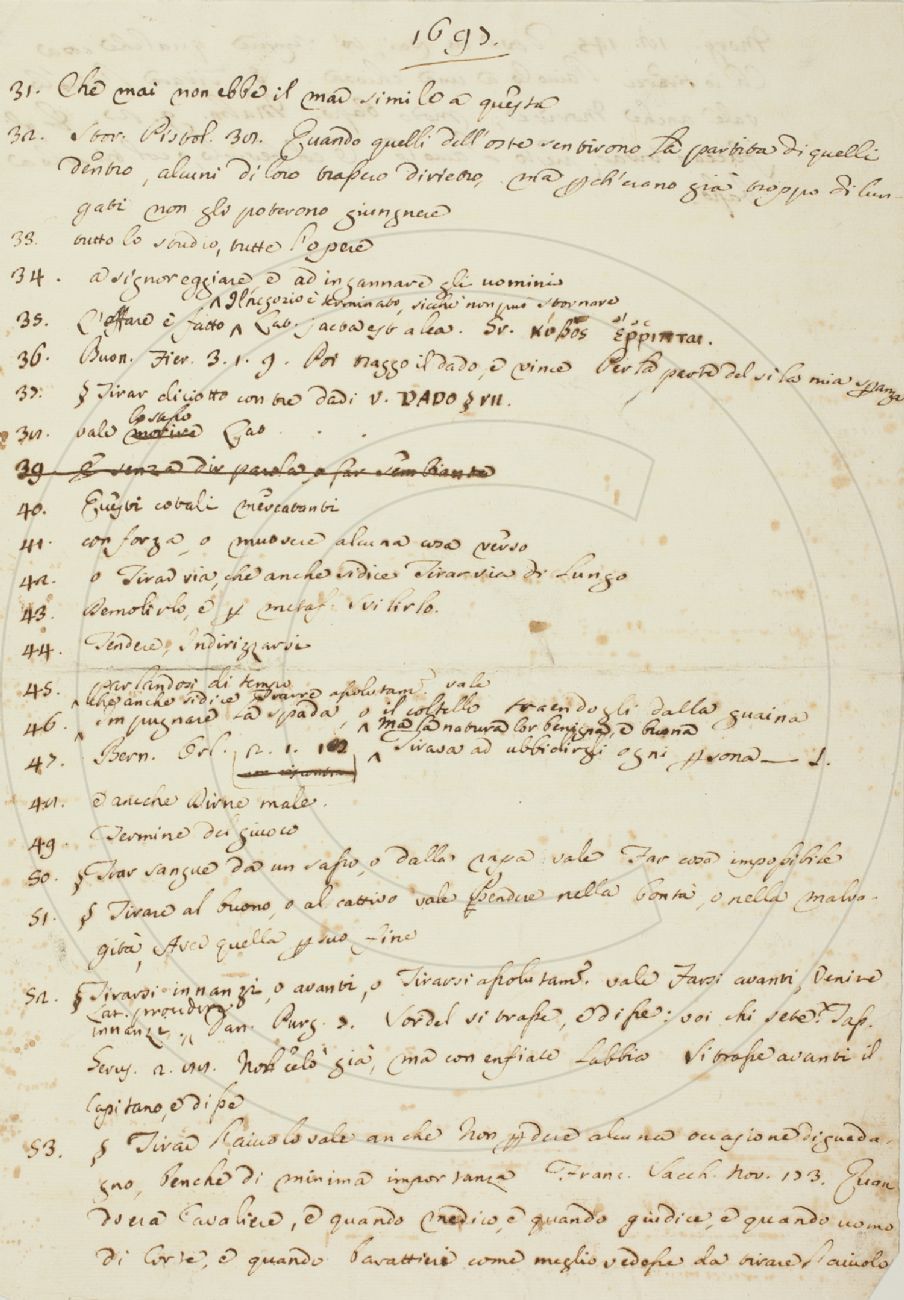 1697.
31. Che mai non ebbe il mar simile a questa
32. Stor. Pistol. 38. Quando quelli dell'oste sentirono la partita di quelli
dentro, alcuni di loro trassero dirietro, ma pch'erano già troppo dilun-
gati non gli poterono giungnere
33. tutto lo studio, tutte l'opere
34. a signoreggiare, e ad ingannare gli uomini
^ Il negozio è terminato, sicchè non può stornare
35. L'affare è fatto ^ Lat. jacta est alea. Gr. κύβος ἔρριπται.
36. Buon. Fier. 3. 1. 9. Poi traggo il dado, e vince Per la parte del sì la mia speranza
37. § Tirar diciotto con tre dadi V. DADO § VII.
lo stesso
38. vale Lat
39. E senza dir parola, o far sembiante
40. Questi cotali mercatanti
41. con forza, o muovere alcuna cosa verso
42. o Tirar via, che anche si dice Tirar via di lungo
43. Demolirlo, e p metaf. Svilirlo.
44. Tendere, Indirizzarsi
45. parlandosi di tempo
^ che anche si dice Trarre assolutam.e vale
46. ^ impugnare la spada, o il coltello traendogli dalla guaina
^ ma la natura lor benigna, e buona
47. Bern. Orl. 2. 1. ^ Tirava ad ubbidirgli ogni psona — 1.
48. e anche Dirne male.
49. Termine del giuoco
50. § Trar sangue da un sasso, o dalla rapa vale Far cosa impossibile
51. § Tirare al buono, o al cattivo vale Pendere nella bontà, o nella malva-
gità, Aver quella p suo fine
52. § Tirarsi innanzi, o avanti, o Tirarsi assolutam.e vale Farsi avanti, Venire
Lat. prodire
innanzi ^ Dan. Purg. 7. Sordel si trasse, e disse: voi chi sete? Tass.
Gerus. 2. 88. Non celò già, ma con enfiate labbia Si trasse avanti il
Capitano, e disse
53. § Tirar l'aiuolo vale anche Non pdere alcuna occasione di guada-
gno, benchè di minima importanza Franc. Sacch. Nov. 173. Quan
do era Cavaliere, e quando medico, e quando giudice, e quando uomo
di Corte, e quando barattiere come meglio vedesse da tirare l'aiuolo